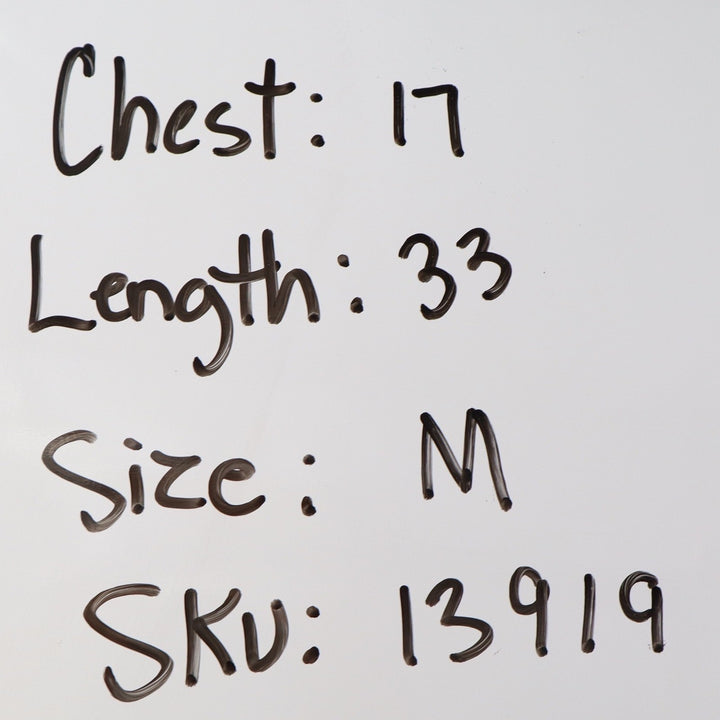 Chest: 17
Length: 33
Size: M
SKU: 13919